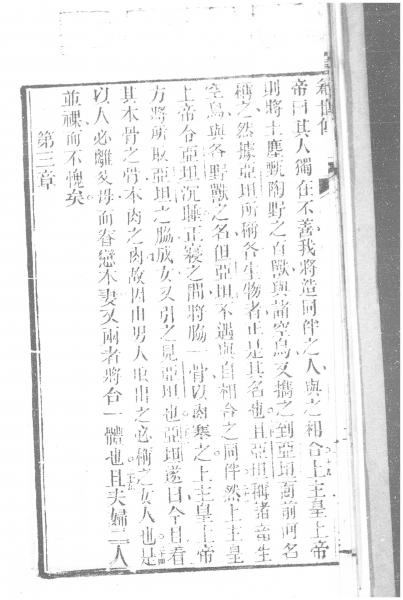 帝曰其人獨在不善我將造同伴之人與之相合上主皇上帝
則將土塵甄陶野之百獸與諸空鳥又攜之到亞坦面前何名
稱之然據亞坦所稱各生物者正是其名也且亞坦稱諸畜生
空鳥與各野獸之名但亞坦不遇與自相合之同伴然上主皇
上帝令亞坦沉睡正寢之間將脇一骨以肉塞之上主皇上帝
方將所取亞坦之脇成女又引之見亞坦也亞坦遂曰今日看
其本骨之骨本肉之肉故因由男人取出之必稱之女人也是
以人必離父母而眷戀本妻又兩者將合一體也且夫婦二人
並裸而不愧矣
第三章